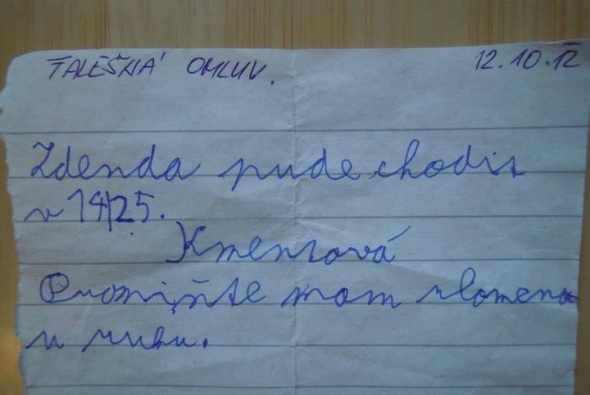 FALEŠNÁ OMLUV.
12.10.12
Zdenda pude chodit
v 14/25.
Kmentová
Promiňte mam zlomeno
u ruku.